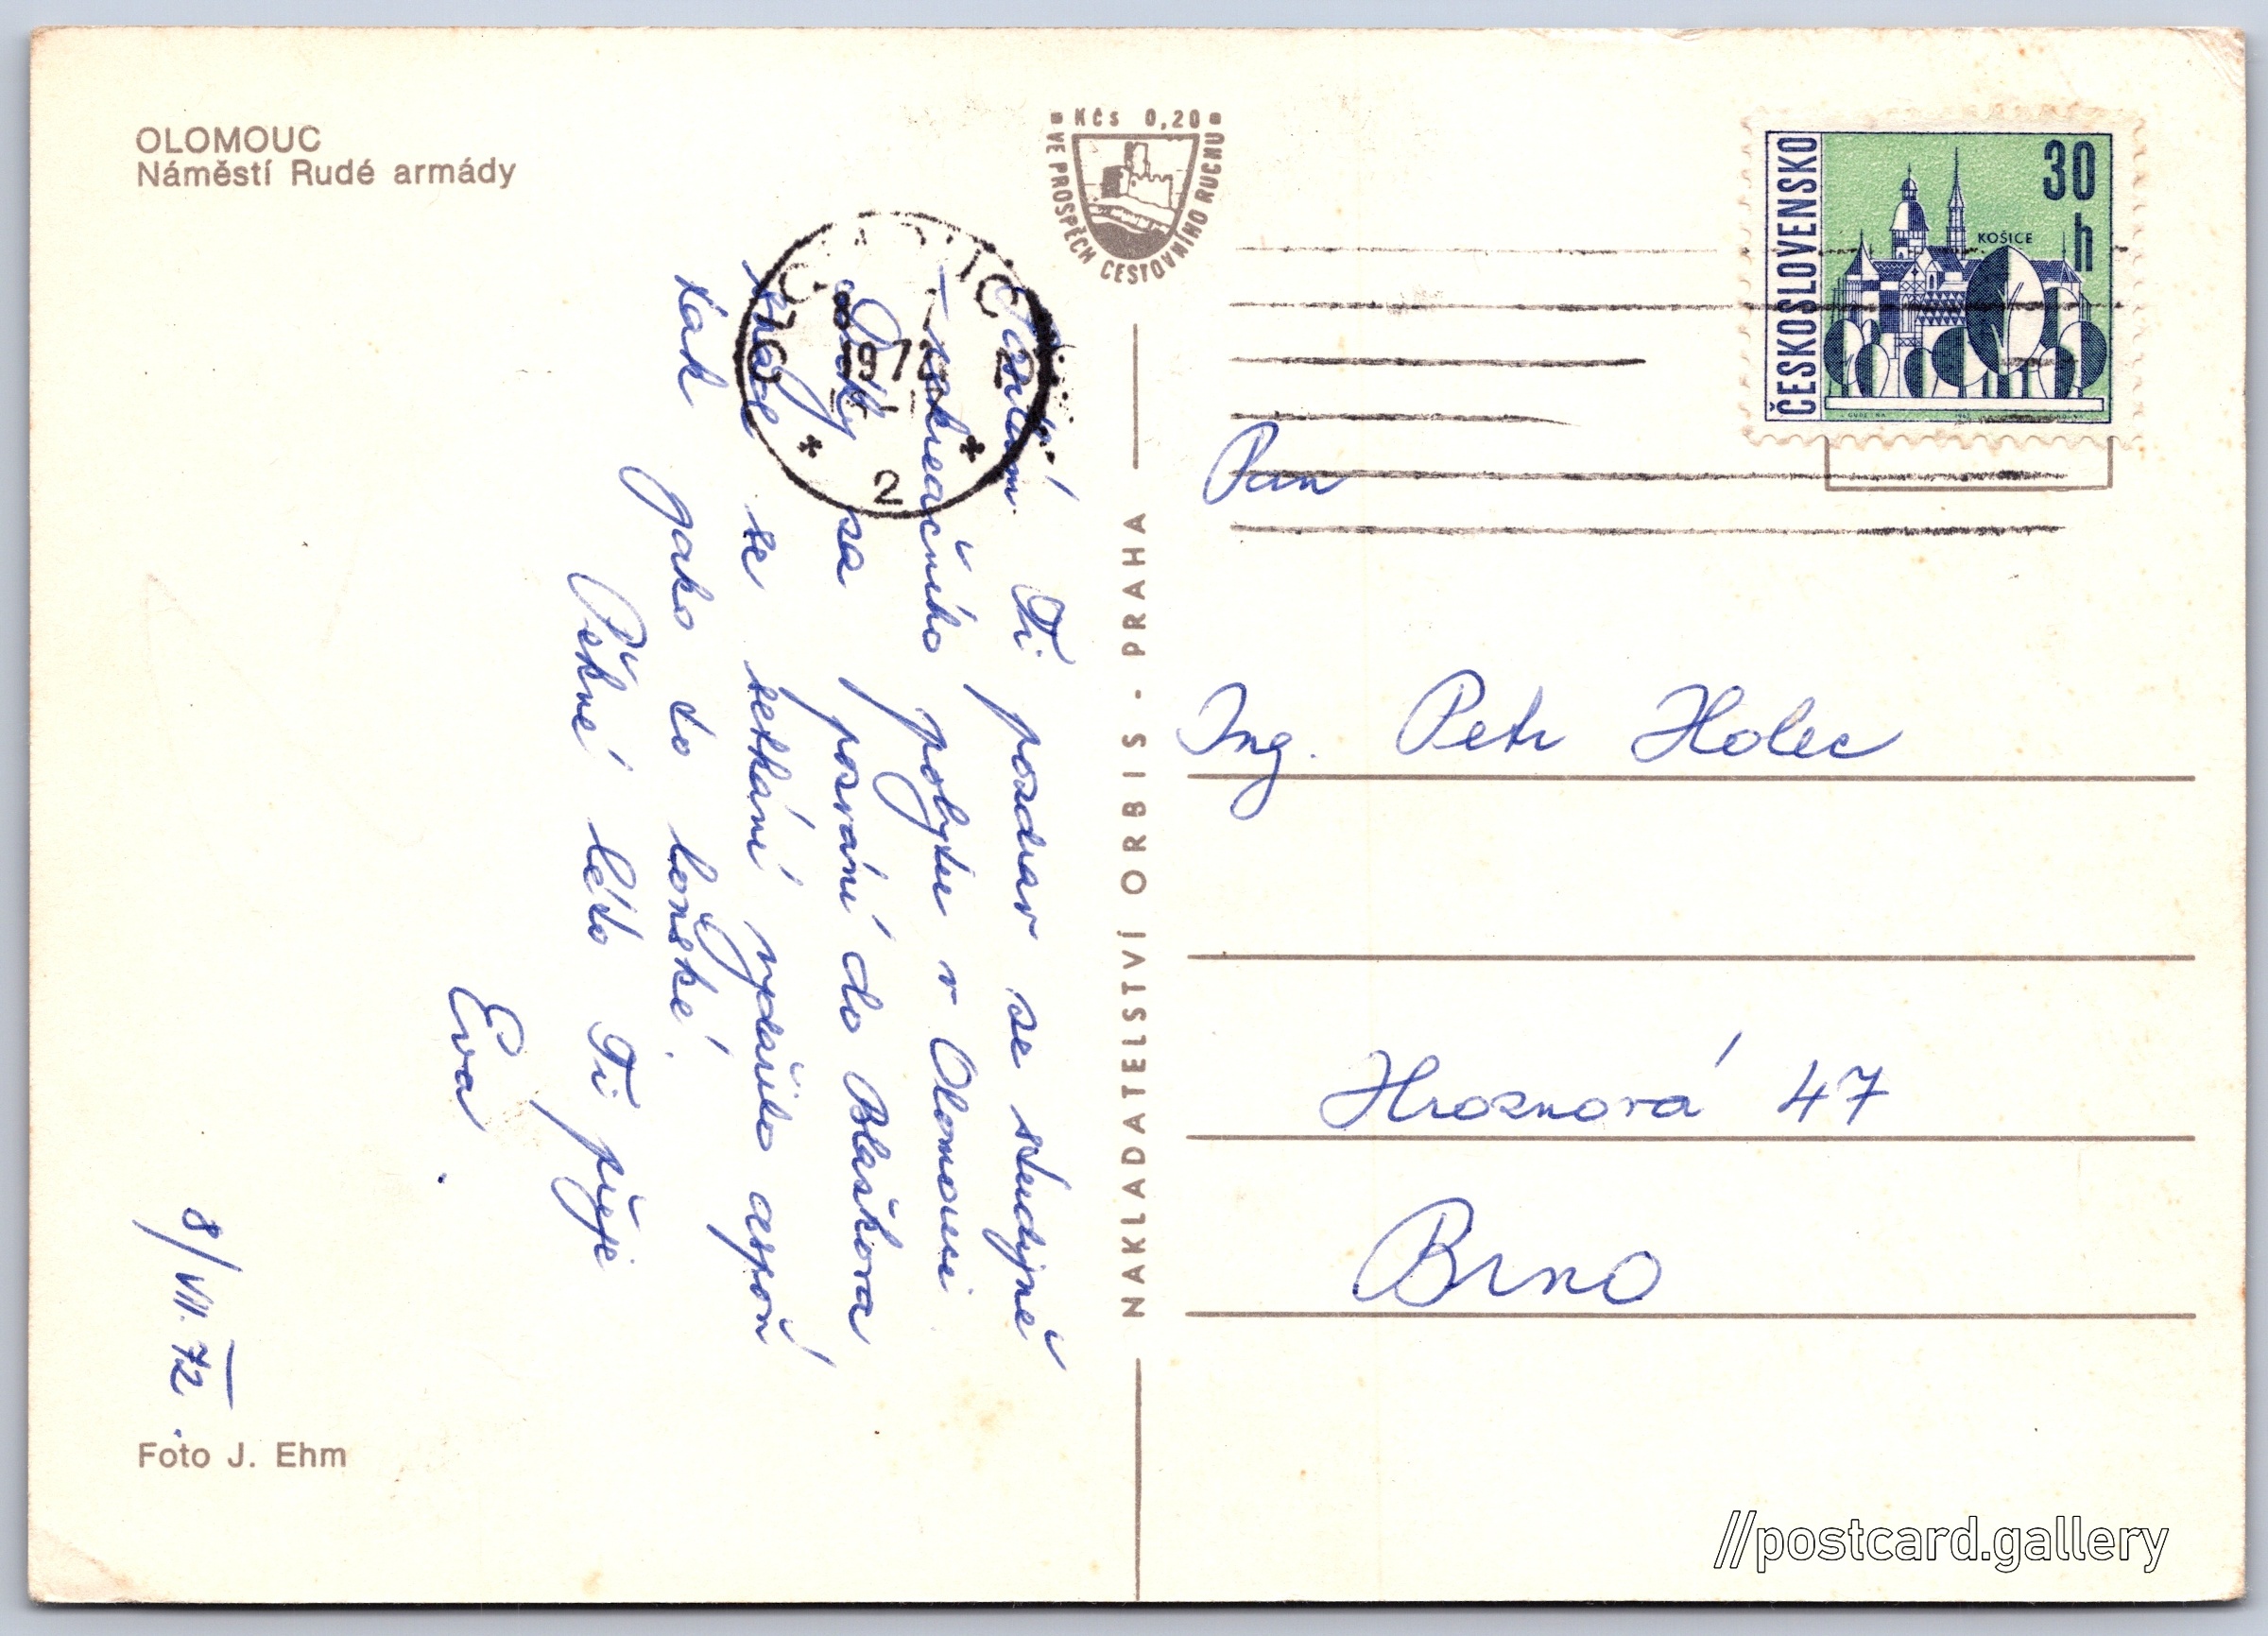 OLOMOUC
Náměstí Rudé armády
Kčs 0,20
VE PROSPĚCH CESTOVNÍHO RUCHU
ČESKOSLOVENSKO
30
h
KOŠICE
1972
2
Posílám Ti pozdrav ze studijně
rekreačního pobytu v Olomouci
Díky za pozvání do Blaškova
snad se setkání vydařilo aspoň
tak jako to loňské.
Pěkné léto Ti přeje
Eva
8/VII. 72.
Foto J. Ehm
NAKLADATELSTVÍ ORBIS - PRAHA
Pan
Ing. Petr Holec
Hroznová 47
Brno
//postcard.gallery